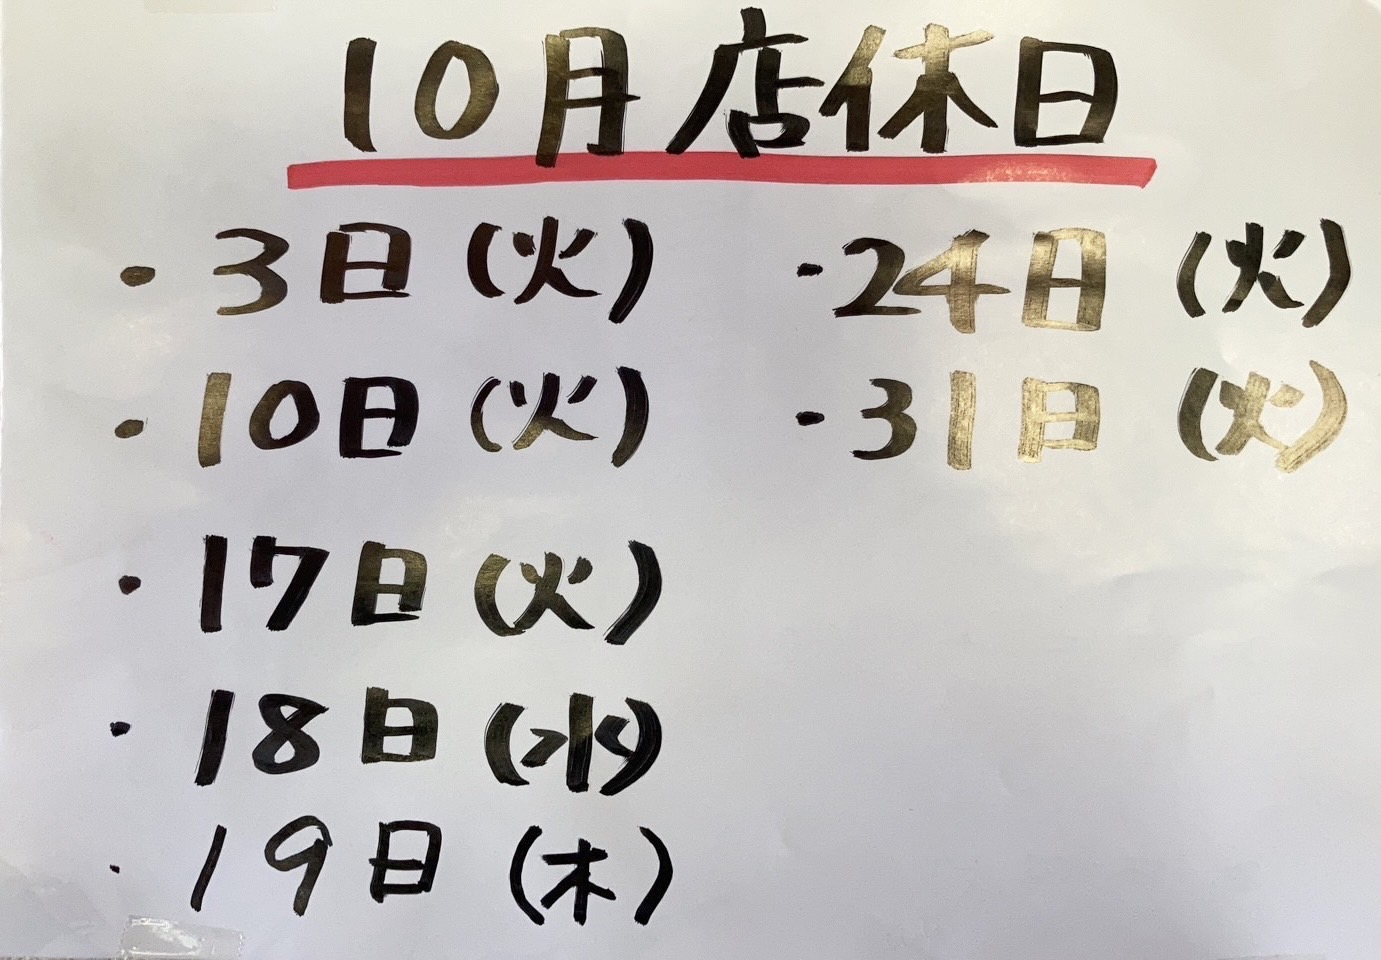 10月店休日
・3日(火)
・10日(火)
・17日(火)
・18日(水)
・19日(木)
・24日(火)
・31日(火)